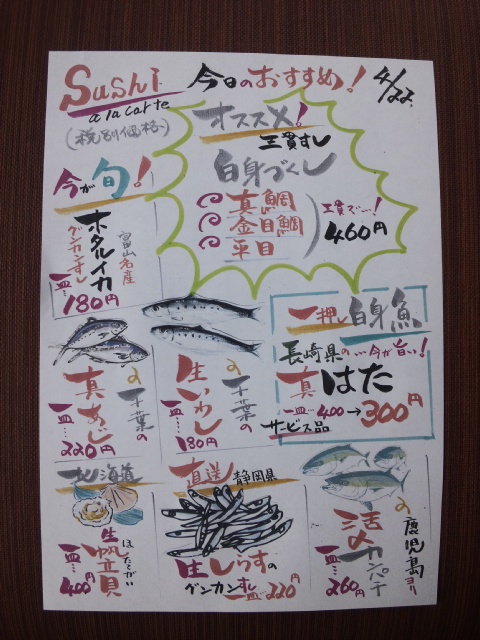 Sushi
a la carte
(税別価格)
今日のおすすめ！
4/22
オススメ！
三貫すし
白身づくし
真鯛
金目鯛
平目
三貫で…！
460円
今が旬！
富山名産
ホタルイカ
グンカンすし
一皿…
180円
千葉の
真あじ
一皿…
220円
千葉の
生いわし
一皿…
180円
一押し白身魚
長崎県の…今が旨い！
真はた
一皿…400→300円
サービス品
北海道
ほたてがい
生帆立貝
一皿…
400円
直送
静岡県
生しらすの
グンカンすし
一皿…220円
鹿児島ヨリ
活〆カンパチ
一皿…
260円